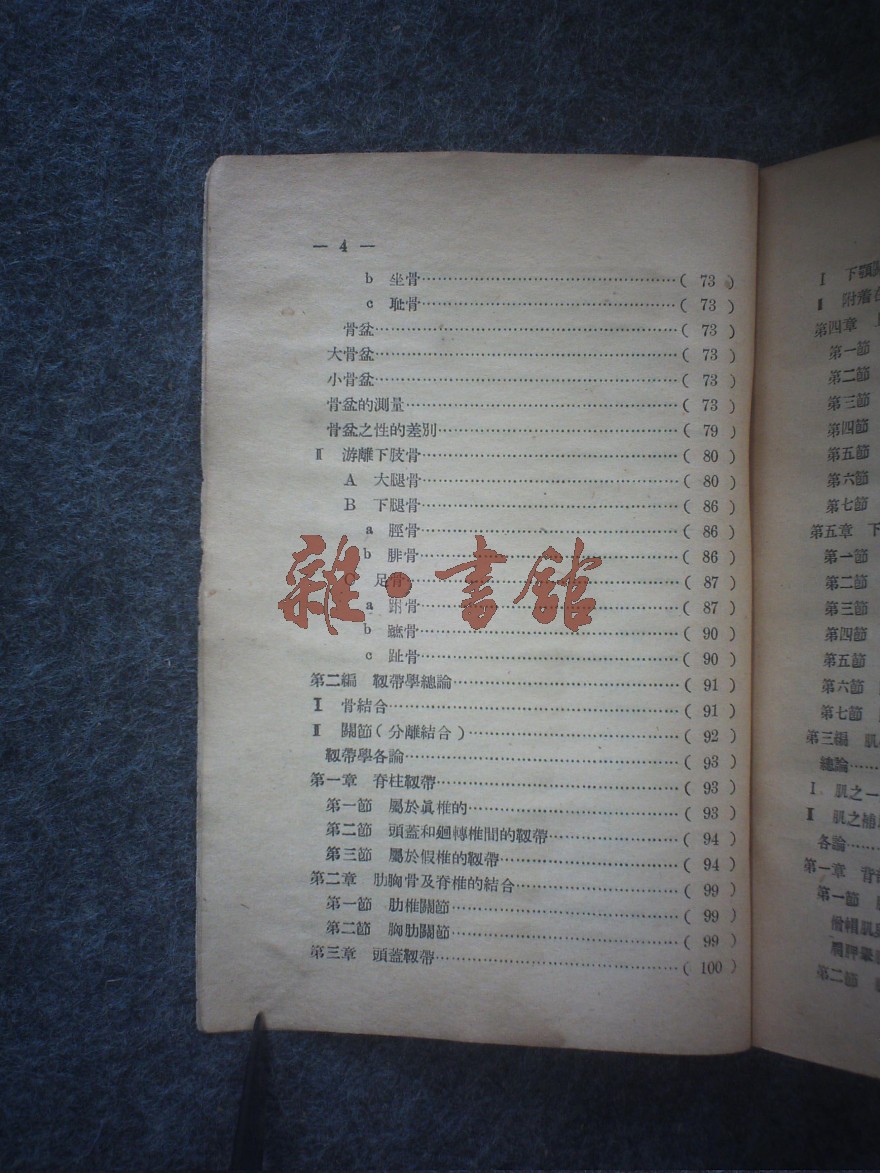 — 4 —
b 坐骨……………………………( 73 )
c 耻骨……………………………( 73 )
骨盆………………………………( 73 )
大骨盆……………………………( 73 )
小骨盆……………………………( 73 )
骨盆的測量………………………( 73 )
骨盆之性的差別…………………( 79 )
Ⅱ 游離下肢骨……………………( 80 )
A 大腿骨…………………………( 80 )
B 下腿骨…………………………( 86 )
a 脛骨……………………………( 86 )
b 腓骨……………………………( 86 )
C 足骨……………………………( 87 )
a 跗骨……………………………( 87 )
b 蹠骨……………………………( 90 )
c 趾骨……………………………( 90 )
第二編 靱帶學總論………………( 91 )
Ⅰ 骨結合…………………………( 91 )
Ⅱ 關節(分離結合)………………( 92 )
靱帶學各論………………………( 93 )
第一章 脊柱靱帶…………………( 93 )
第一節 屬於眞椎的………………( 93 )
第二節 頭蓋和廻轉椎間的靱帶…( 94 )
第三節 屬於假椎的靱帶…………( 94 )
第二章 肋胸骨及脊椎的結合……( 99 )
第一節 肋椎關節…………………( 99 )
第二節 胸肋關節…………………( 99 )
第三章 頭蓋靱帶…………………( 100 )
雜·書館
Ⅰ 下顎
Ⅱ 附着
第四章
第一節
第二節
第三節
第四節
第五節
第六節
第七節
第五章 下
第一節
第二節
第三節
第四節
第五節
第六節
第七節
第三編 肌
總論……
Ⅰ 肌之一
Ⅱ 肌之補
各論……
第一章 背
第一節
僧帽肌
第二節